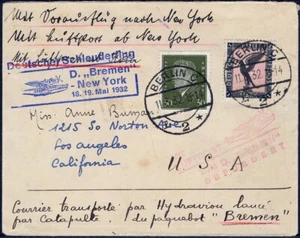 Mit Vorausflug nach New York
Mit Luftpost ab New York
Deutscher Schleuderflug
D. „Bremen"
- New York
18. 19. Mai 1932
BERLIN C
2
BERLIN C
2
Miss. Anne
1215 So Norton Ave
Los angeles
California
U S A
BEFÖRDERT
Courrier transporté par Hydravion lancé
par Catapulte du paquebot "Bremen"